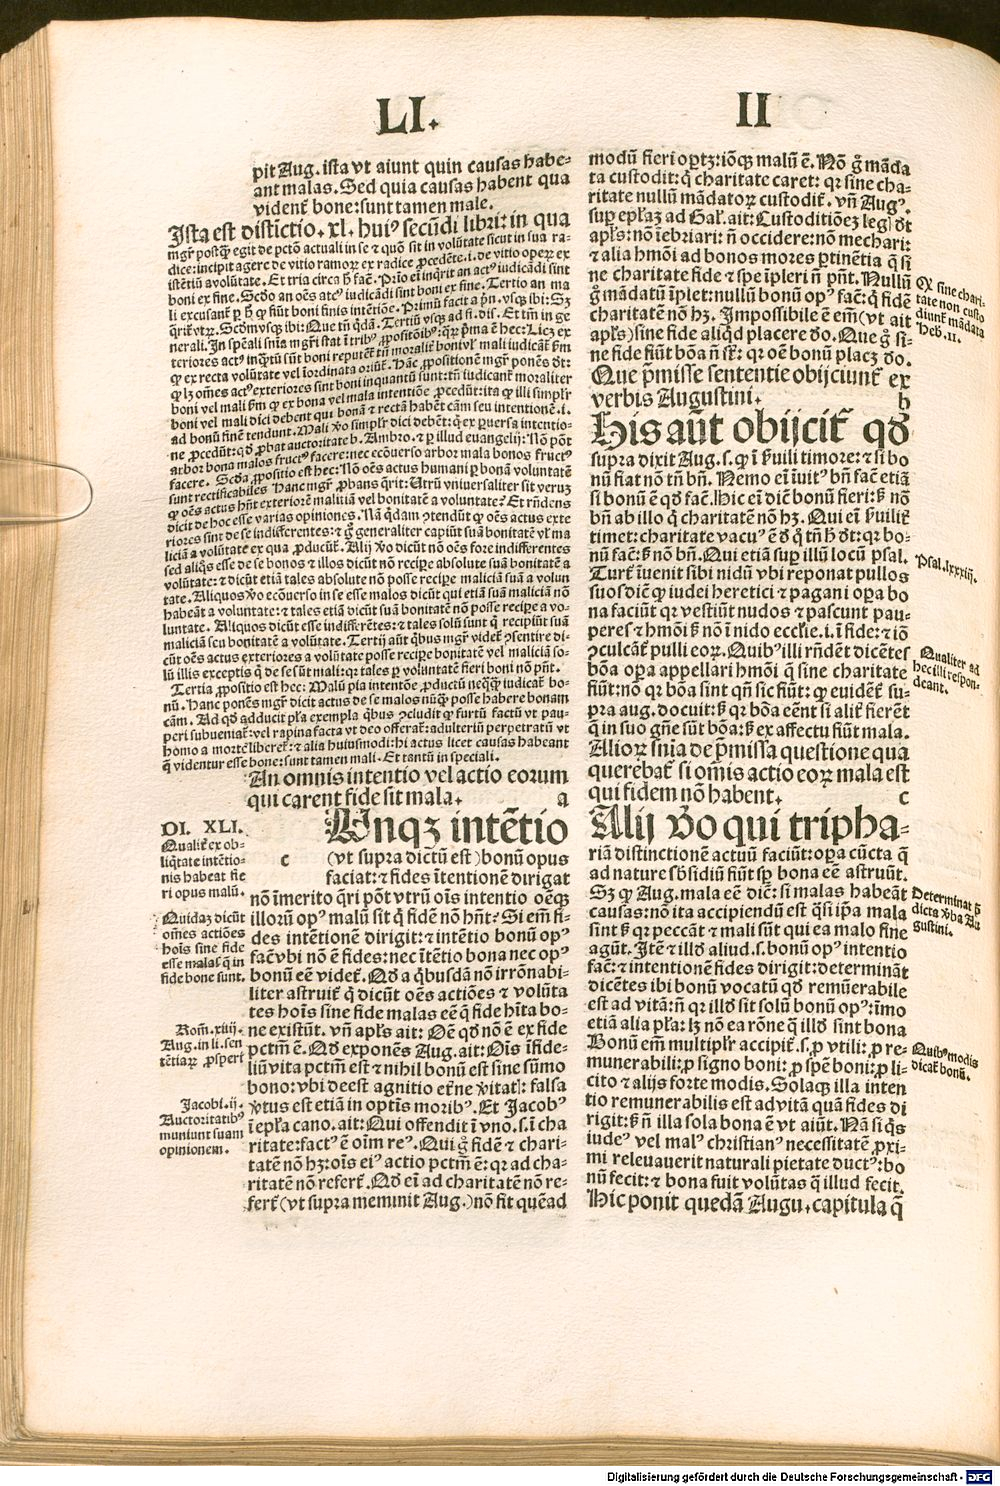 LI.
II
pit Aug. ista vt aiunt quin causas habe-
ant malas. Sed quia causas habent qua
vident᷑ bone: sunt tamen male.
Ista est distictio. xl. huiꝰ secūdi libri: in qua
mgr̄ postꝙ̄ egit de pctō actuali in se ⁊ quō sit in volūtate sicut in sua ra-
dice: incipit agere de vitio ramoꝝ ex radice ꝓcedēte .i. de vitio operꝝ ex
istētiū a volūtate. Et tria circa h̄ fac̄.
teriores actꝰ inq̄tū sūt boni
ꝙ ex recta volūtate vel īordinata
ꝙ lꝫ om̄es actꝰ exteriores sint boni inquantū sunt: tn̄ iudicant᷑ moraliter
boni vel mali
boni vel mali dici debent qui bonā ⁊ rectā habēt cām seu intentionē .i.
ad bonū finē tendunt. Mali v̄o simplr̄ dici debēt: q̄ ex ꝑuersa intentio-
ne ꝓcedūt: qd̄ ꝓbat auctoritate b. Ambro. ⁊ ꝑ illud euangelij: Nō pōt
arbor bona malos fructꝰ facere: nec ecōuerso arbor mala bonos fructꝰ
facere. Scd̄a ꝓpositio est hec: Nō oēs actus humani ꝑ bonā voluntatē
sunt rectificabiles. Hanc mgr̄ ꝓbans q̄rit: Utrū vniuersaliter sit verūꝫ
ꝙ oēs actus hn̄t exteriorē maliciā vel bonitatē a voluntate? Et rn̄dens
dicit de hoc esse varias opiniones. Nā q̄dam ↄtendūt ꝙ oēs actus exte
riores sint de se indifferentes: ⁊ ḡ generaliter capiūt suā bonitatē vl̄ ma
liciā a volūtate ex qua ꝓducūt᷑. Alij v̄o dicūt nō oēs fore indifferentes
sed aliq̄s esse de se bonos ⁊ illos dicūt nō recipe absolute suā bonitatē a
volūtate: ⁊ dicūt etiā tales absolute nō posse recipe maliciā suā a volun
tate. Aliquos v̄o ecōuerso in se esse malos dicūt qui etiā suā maliciā nō
habeāt a voluntate: ⁊ tales etiā dicūt suā bonitatē nō posse recipe a vo-
luntate. Aliquos dicūt esse indifferētes: ⁊ tales solū sunt q̄ recipiūt suā
maliciā seu bonitatē a volūtate. Tertij aūt q̄bus mgr̄ videt᷑ ↄsentire di-
cūt oēs actus exteriores a volūtate posse recipe bonitatē vel maliciā so-
lū illis exceptis q̄ de se sūt mali: qꝛ tales ꝑ voluntatē fieri boni nō pn̄t.
Tertia ꝓpositio est hec: Malū pia intentōe ꝓductū neq̄ꝙ̄ iudicat᷑ bo-
nū. Hanc ponēs mgr̄ dicit actus de se malos nūꝙ̄ posse habere bonam
cām. Ad qd̄ adducit pl̄a exempla q̄bus ↄcludit ꝙ furtū factū vt pau-
peri subueniat᷑: vel rapina facta vt deo offerat᷑: adulteriū perpetratū vt
homo a morte liberet᷑: ⁊ alia huiusmodi: hi actus licet causas habeant
q̄ videntur esse bone: sunt tamen mali. Et tantū in speciali.
An omnis intentio vel actio eorum
qui carent fide sit mala. a
DI. XLI.
Qualit᷑ ex ob-
liq̄tate intētio-
nis habeat fie
ri opus malū.
Quidaꝫ dicūt
om̄es actiōes
hoīs sine fide
esse malas q̄ in
fide bone sunt.
Rom̄. xiiij.
Aug. in li. sen
tētiaꝝ ꝓsperi
Jacobi. ij.
Auctoritatibꝰ
muniunt suam
opinionem.
c
Unqꝫ intētio
(vt supra dictū est) bonū opus
faciat: ⁊ fides ītentionē dirigat
nō īmerito q̄ri pōt vtrū oīs intentio oēqꝫ
illoꝝ opꝰ malū sit q̄ fidē nō hn̄t? Si em̄ fi-
des intētionē dirigit: ⁊ intētio bonū opꝰ
facē vbi nō ē fides: nec ītētio bona nec opꝰ
bonū eē videt᷑. Qd̄ a q̄busdā nō irrōnabi-
liter astruit᷑ q̄ dicūt oēs actiōes ⁊ volūta
tes hoīs sine fide malas eē q̄ fide hīta bo-
ne existūt. vn̄ apl̄s ait: Oē qd̄ nō ē ex fide
pctm̄ ē. Qd̄ exponēs Aug. ait: Oīs īfide-
liū vita pctm̄ est ⁊ nihil bonū est sine sūmo
bono: vbi deest agnitio et᷑ne v̄itatꝭ: falsa
v̄tus est etiā in optīs moribꝰ. Et Jacobꝰ
ī ep̄la cano. ait: Qui offendit ī vno .s. ī cha
ritate: factꝰ ē oīm reꝰ. Qui ḡ fidē ⁊ chari-
tatē nō hꝫ: oīs eiꝰ actio pctm̄ ē: qꝛ ad cha-
ritatē nō refert᷑. Qd̄ eī ad charitatē nō re-
fert᷑ (vt supra meminit Aug.) nō fit quēad
modū fieri oportꝫ: iōqꝫ malū ē. Nō ḡ māda
ta custodit: q̄ charitate caret: qꝛ sine cha-
ritate nullū mādatoꝝ custodit᷑. vn̄ Augꝰ.
suꝑ ep̄laꝫ ad Gal̄. ait: Custoditiōeꝫ legꝭ dt̄
apl̄s: nō īebriari: n̄ occidere: nō mechari:
⁊ alia hmōi ad bonos mores ꝑtinētia q̄ si
ne charitate fide ⁊ spe īpleri n̄ pn̄t. Nullū
ḡ mādatū īplet: nullū bonū opꝰ fac̄: q̄ fidē
charitatē nō hꝫ. Impossibile ē em̄ (vt ait
apl̄s) sine fide aliq̄d placere do. Que ḡ si-
ne fide fiūt bōa n̄ st̄: qꝛ oē bonū placꝫ do.
Que p̄misse sententie obijciunt᷑ ex
verbis Augustini. b
His aūt obijcit᷑ qd̄
supra dixit Aug. .s. ꝙ ī ẜuili timore: ⁊ si bo
nū fiat nō tn̄ bn̄. Nemo eī īuitꝰ bn̄ fac̄ etiā
si bonū ē qd̄ fac̄. Hic eī dic̄ bonū fieri: ẜ nō
bn̄ ab illo q̄ charitatē nō hꝫ. Qui eī ẜuilit᷑
timet: charitate vacuꝰ ē d̄ q̄ tn̄ h̄ dt̄: qꝛ bo-
nū fac̄: ẜ nō bn̄. Qui etiā suꝑ illū locū psal.
Turt᷑ īuenit sibi nidū vbi reponat pullos
suos dic̄ ꝙ iudei heretici ⁊ pagani oꝑa bo
na faciūt qꝛ vestiūt nudos ⁊ pascunt pau-
peres ⁊ hmōi ẜ nō ī nido ecclīe .i. ī fide: ⁊ iō
ↄculcāt᷑ pulli eoꝝ. Quibꝰ illi rn̄dēt dicētes
bōa oꝑa appellari hmōi q̄ sine charitate
fiūt: nō qꝛ bōa sint qn̄ sic fiūt: ꝙ euidēt᷑ su-
pra aug. docuit: ẜ qꝛ bōa eēnt si alit᷑ fierēt
q̄ in suo gn̄e sūt bōa: ẜ ex affectu fiūt mala.
Alioꝝ sn̄ia de p̄missa questione qua
querebat᷑ si om̄is actio eoꝝ mala est
qui fidem nō habent. c
Alij v̄o qui tripha-
riā distinctionē actuū faciūt: oꝑa cūcta q̄
ad nature sb̄sidiū fiūt sp̄ bona eē astruūt.
Sꝫ ꝙ Aug. mala eē dic̄: si malas habeāt
causas: nō ita accipiendū est q̄si ip̄a mala
sint ẜ qꝛ peccāt ⁊ mali sūt qui ea malo fine
agūt. Itē ⁊ illd̄ aliud .s. bonū opꝰ intentio
fac̄: ⁊ intentionē fides dirigit: determināt
dicētes ibi bonū vocatū qd̄ remūerabile
est ad vitā: n̄ qꝛ illd̄ sit solū bonū opꝰ: īmo
etiā alia pl̄a: lꝫ nō ea rōne q̄ illd̄ sint bona
Bonū em̄ multiplr̄ accipit᷑ .s. ꝓ vtili: ꝓ re-
munerabili: ꝓ signo boni: ꝓ spē boni: ꝓ li-
cito ⁊ alijs forte modis. Solaqꝫ illa inten
tio remunerabilis est ad vitā quā fides di
rigit: ẜ n̄ illa sola bona ē vt aiūt. Nā si q̄s
iudeꝰ vel malꝰ christianꝰ necessitatē ꝓxi-
mi releuauerit naturali pietate ductꝰ: bo
nū fecit: ⁊ bona fuit volūtas q̄ illud fecit.
Hic ponit quedā Augu. capitula q̄
Qꝫ sine chari-
tate non custo
diunt᷑ mādata
Heb. 11.
Psal. lxxxiij.
Qualiter ad
hec illi respon-
deant.
Determinat ẜ
dicta v̄ba Au
gustini.
Quibꝰ modis
dicat᷑ bonū.
Digitalisierung gefördert durch die Deutsche Forschungsgemeinschaft - DFG